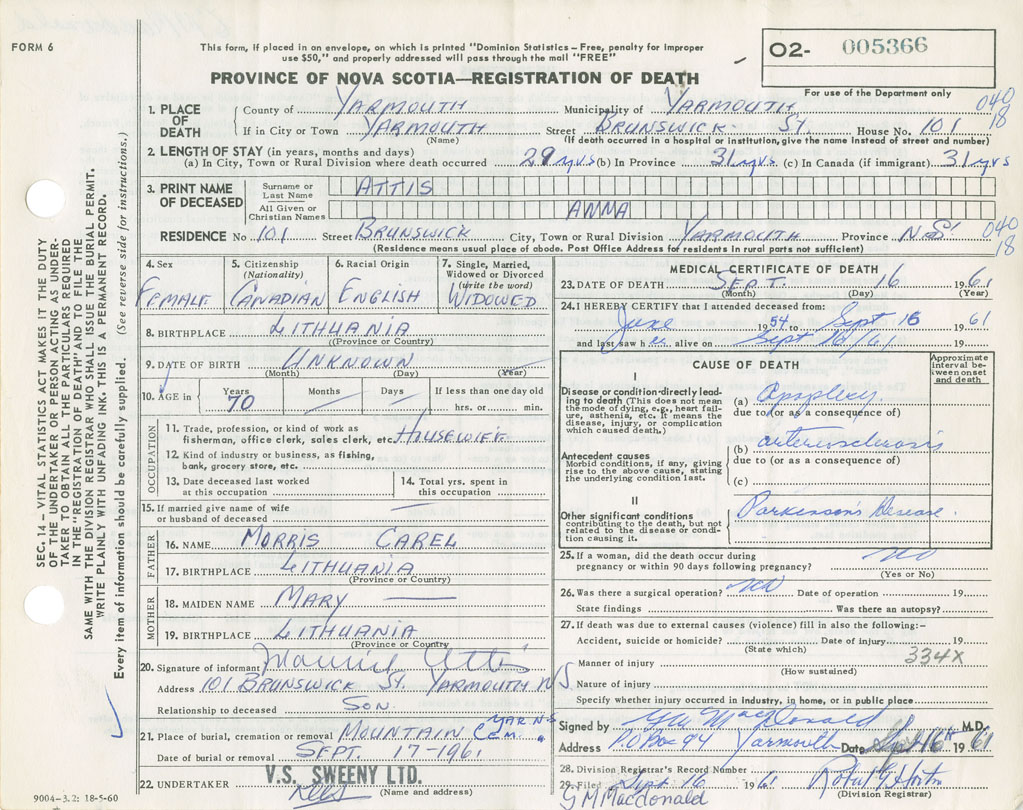 FORM 6
This form, if placed in an envelope, on which is printed "Dominion Statistics – Free, penalty for improper
use $50," and properly addressed will pass through the mail "FREE"
O2- 005366
PROVINCE OF NOVA SCOTIA—REGISTRATION OF DEATH
For use of the Department only
040
18
1. PLACE OF DEATH
County of YARMOUTH Municipality of YARMOUTH
If in City or Town YARMOUTH Street BRUNSWICK ST. House No. 101
(Name) (If death occurred in a hospital or institution, give the name instead of street and number)
2. LENGTH OF STAY (in years, months and days)
(a) In City, Town or Rural Division where death occurred 29 yrs (b) In Province 31 yrs. (c) In Canada (if immigrant) 31 yrs
3. PRINT NAME OF DECEASED
Surname or Last Name ATTIS
All Given or Christian Names ANNA
RESIDENCE No 101 Street BRUNSWICK City, Town or Rural Division YARMOUTH Province N.S.
040
18
(Residence means usual place of abode. Post Office Address for residents in rural parts not sufficient)
4. Sex
FEMALE
5. Citizenship (Nationality)
CANADIAN
6. Racial Origin
ENGLISH
7. Single, Married, Widowed or Divorced (write the word)
WIDOWED
8. BIRTHPLACE LITHUANIA
(Province or Country)
9. DATE OF BIRTH UNKNOWN
(Month) (Day) (Year)
10. AGE in
Years
70
Months
Days
If less than one day old
hrs. or min.
OCCUPATION
11. Trade, profession, or kind of work as
fisherman, office clerk, sales clerk, etc. HOUSEWIFE
12. Kind of industry or business, as fishing,
bank, grocery store, etc.
13. Date deceased last worked
at this occupation
14. Total yrs. spent in
this occupation
15. If married give name of wife
or husband of deceased
FATHER
16. NAME MORRIS CAREL
17. BIRTHPLACE LITHUANIA
(Province or Country)
MOTHER
18. MAIDEN NAME MARY
19. BIRTHPLACE LITHUANIA
(Province or Country)
20. Signature of informant Attis
Address 101 BRUNSWICK ST. YARMOUTH N.S.
Relationship to deceased SON
21. Place of burial, cremation or removal MOUNTAIN CEM. YAR N S
Date of burial or removal SEPT. 17-1961
22. UNDERTAKER V.S. SWEENY LTD.
(Name and address)
9004–3.2: 18-5-60
MEDICAL CERTIFICATE OF DEATH
23. DATE OF DEATH SEPT. 16 1961
(Month) (Day) (Year)
24. I HEREBY CERTIFY that I attended deceased from:
June 1954 to Sept 16 1961
and last saw her alive on Sept 16/61 19
CAUSE OF DEATH
Approximate interval between onset and death
I
Disease or condition directly leading to death (This does not mean the mode of dying, e.g., heart failure, asthenia, etc. It means the disease, injury, or complication which caused death.)
(a) apoplexy
due to (or as a consequence of)
(b) arteriosclerosis
Antecedent causes
Morbid conditions, if any, giving rise to the above cause, stating the underlying condition last.
due to (or as a consequence of)
(c)
II
Other significant conditions
contributing to the death, but not related to the disease or condition causing it.
Parkinson's Disease.
25. If a woman, did the death occur during
pregnancy or within 90 days following pregnancy? no
(Yes or No)
26. Was there a surgical operation? no Date of operation 19
State findings Was there an autopsy?
27. If death was due to external causes (violence) fill in also the following:–
Accident, suicide or homicide? Date of injury 19
(State which)
334X
Manner of injury
(How sustained)
Nature of injury
Specify whether injury occurred in industry, in home, or in public place
Signed by G M MacDonald M.D.
Address P.O Box 94 Yarmouth Date Sept 16th 1961
28. Division Registrar's Record Number
29. Filed Sept 16 1961 Robert G Horton
(Division Registrar)
G M MacDonald
SEC. 14 – VITAL STATISTICS ACT MAKES IT THE DUTY
OF THE UNDERTAKER OR PERSON ACTING AS UNDER-
TAKER TO OBTAIN ALL THE PARTICULARS REQUIRED
IN THE "REGISTRATION OF DEATH" AND TO FILE THE
SAME WITH THE DIVISION REGISTRAR WHO SHALL ISSUE THE BURIAL PERMIT.
WRITE PLAINLY WITH UNFADING INK. THIS IS A PERMANENT RECORD.
Every item of information should be carefully supplied. (See reverse side for instructions.)